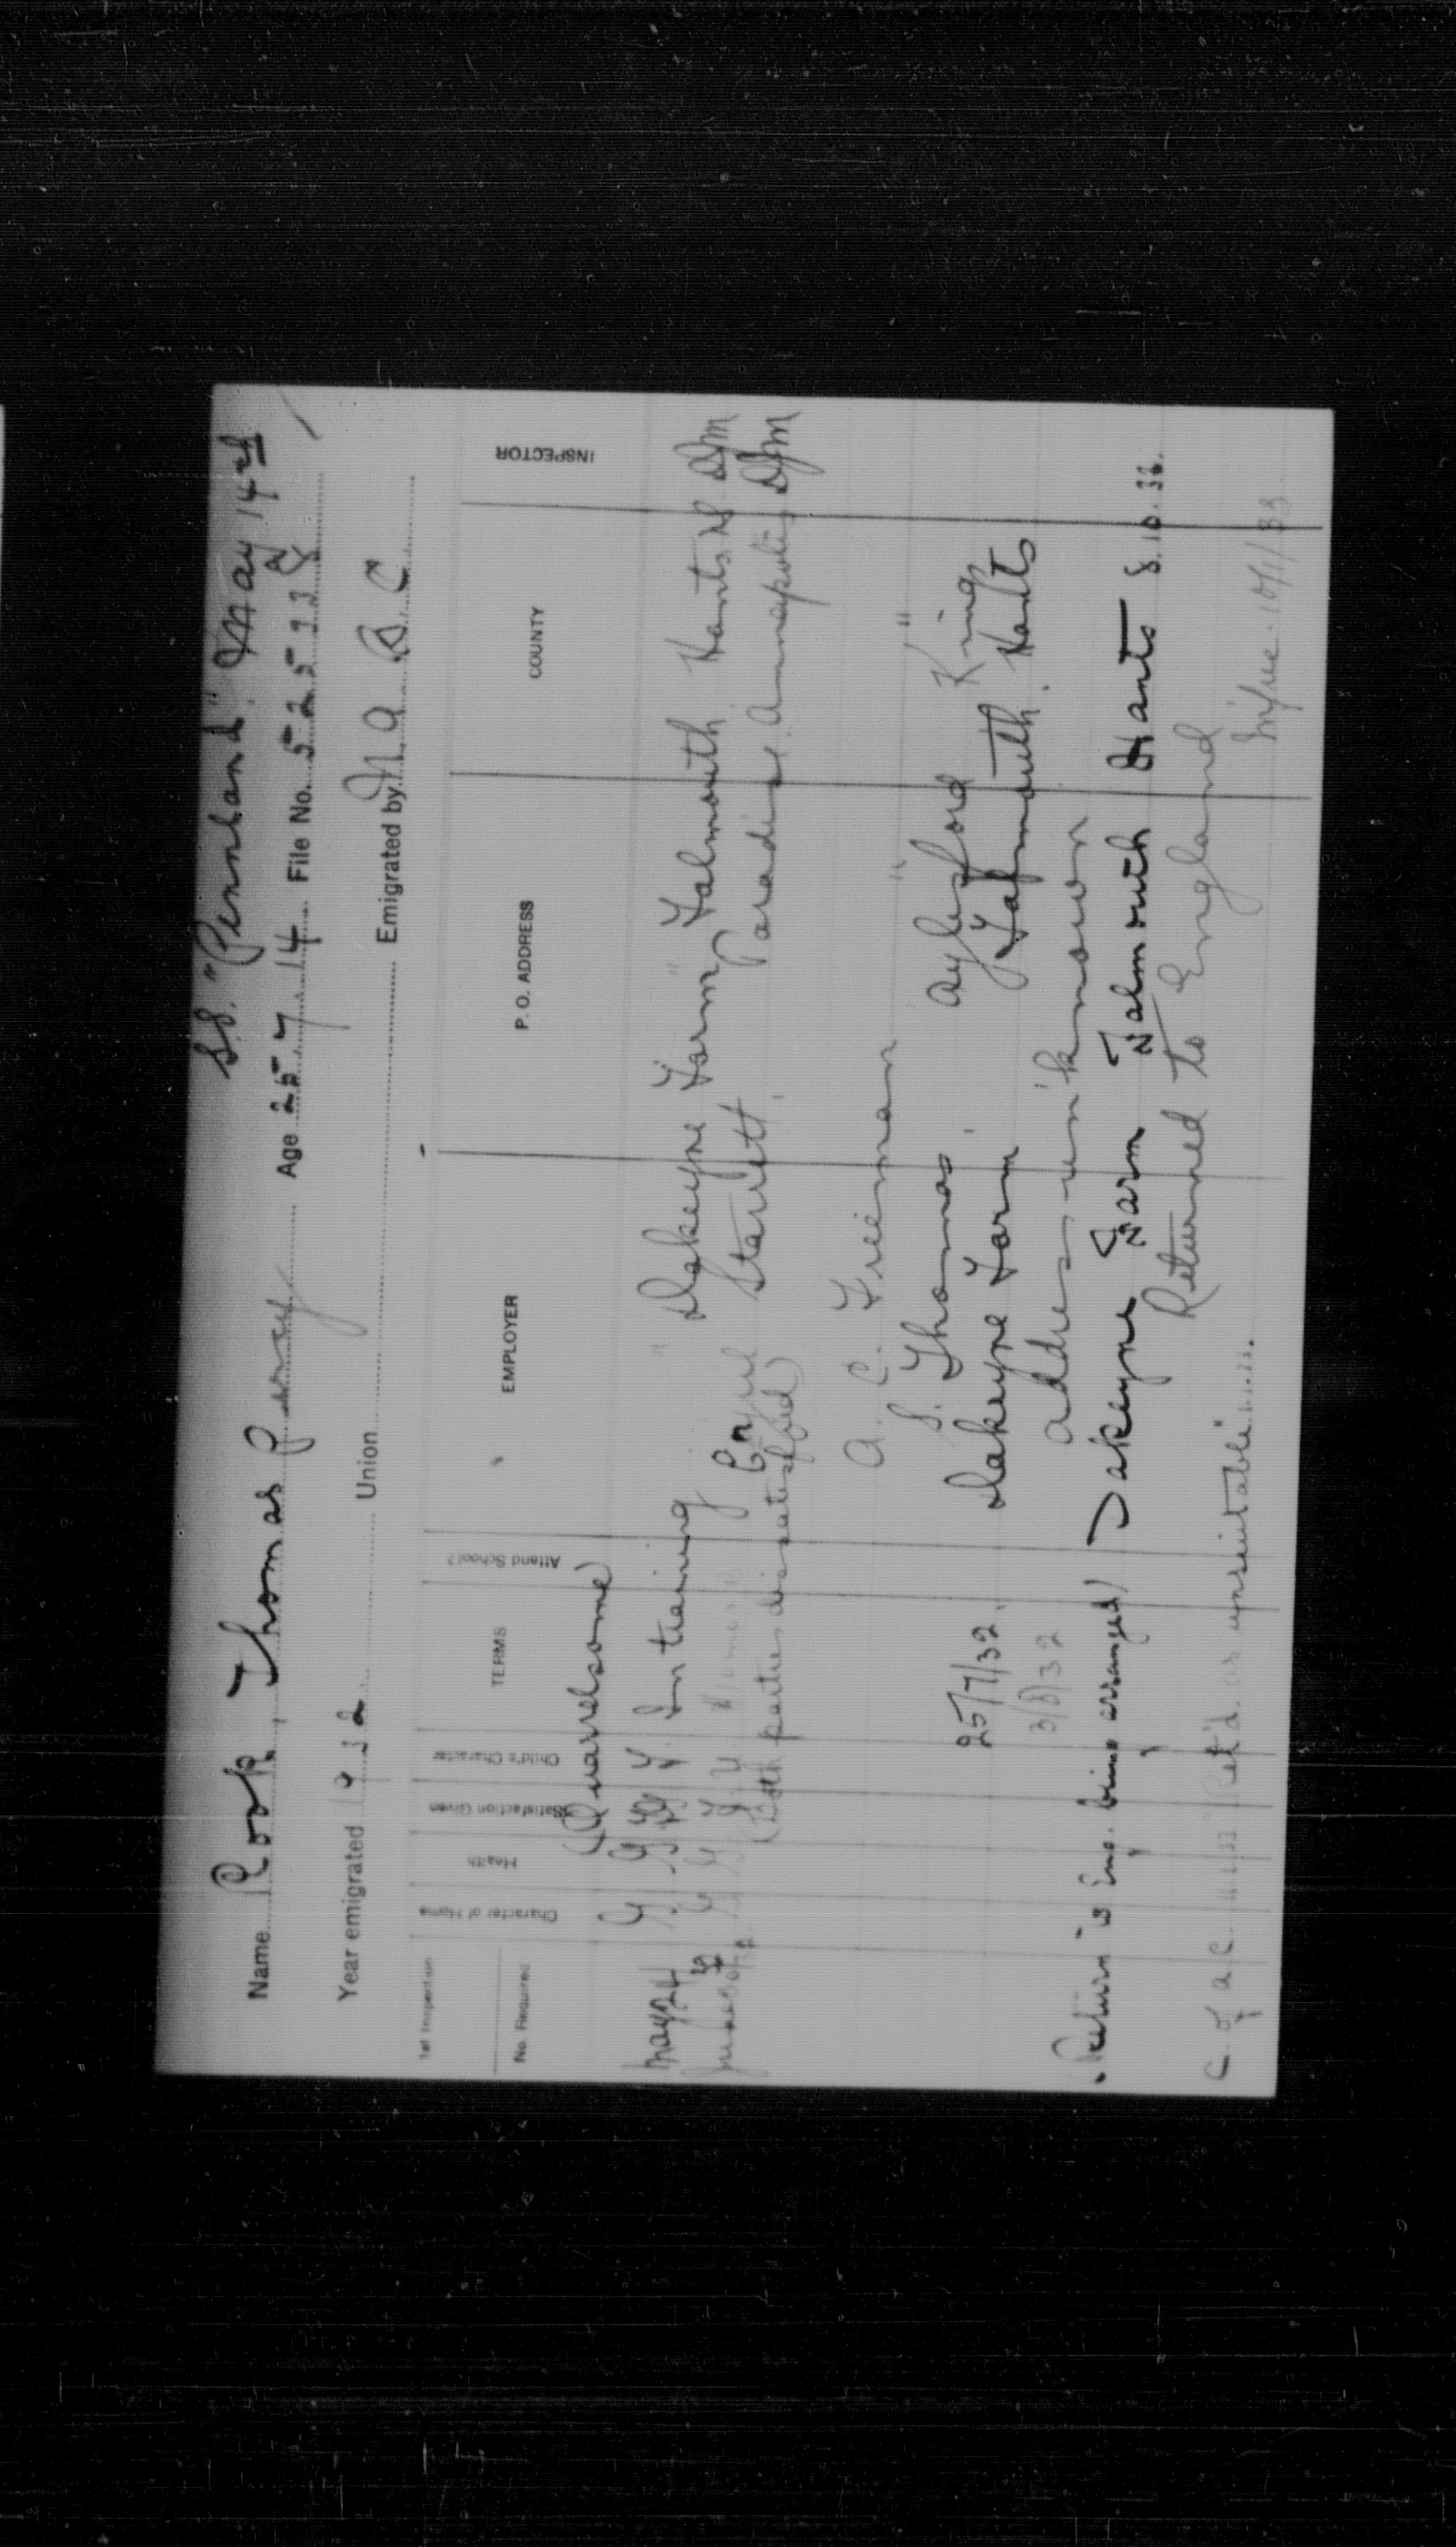 S.S. "Pennland" May 14th
Name Cook, Thomas Percy Age 25 7 14 File No. 525222
Year emigrated 1932 Union Emigrated by N A B C
1st Inspection
No. Required
Character of Home
Health
Satisfaction Given
Child's Character
TERMS
Attend School?
EMPLOYER
P. O. ADDRESS
COUNTY
INSPECTOR
(Quarrelsome)
May 24 G G In training " Dakeyne Farm, Falmouth Hants NS
Starratt, Paradise Annapolis
(Both parties dissatisfied)
A. C. Freeman " "
S. Thomas, Aylesford Kings
25/7/32. Dakeyne Farm Falmouth. Hants
3/8/32 address-un'known
(Return to Eng. being arranged) Dakeyne Farm Falmouth Hants 8.10.32.
Returned to England
C. of a/c. Ret'd as unsuitable"